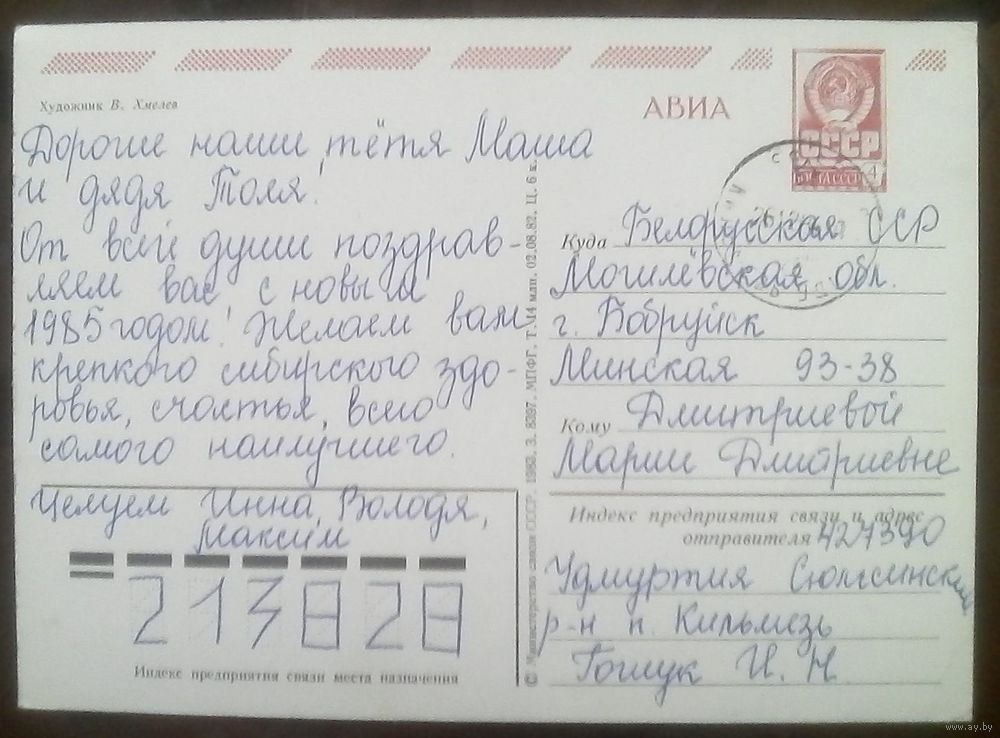 Художник В. Хмелев
АВИА
СССР
ПОЧТА СССР 4
Дорогие наши тётя Маша
и дядя Толя!
От всей души поздрав-
ляем вас с новым
1985 годом! Желаем вам
крепкого сибирского здо-
ровья, счастья, всего
самого наилучшего.
Целуем Инна, Володя,
Максим
213828
Индекс предприятия связи места назначения
© Министерство связи СССР. 1983. З. 8397. МПФГ. Т. 14 млн. 02.08.82. Ц. 6 к.
Куда Белорусская ССР
Могилёвская обл.
г. Бобруйск
Минская 93-38
Кому Дмитриевой
Марии Дмитриевне
Индекс предприятия связи и адрес
отправителя 427390
Удмуртия Сюмсинский
р-н п. Кильмезь
И. Н.
www.ay.by